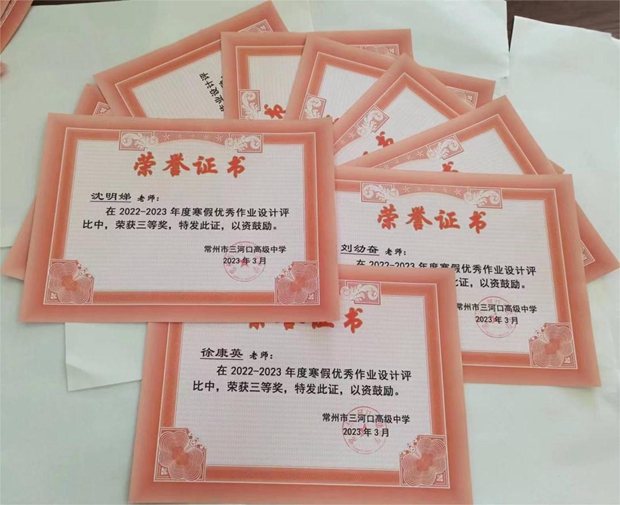 荣誉证书
沈明娣 老师:
在2022-2023年度寒假优秀作业设计评
比中,荣获三等奖,特发此证,以资鼓励。
常州市三河口高级中学
2023年3月
荣誉证书
刘幼奋 老师:
在2022-2023年度寒假优秀作业设计评
以资鼓励。
常州市三河口高级中学
2023年3月
荣誉证书
徐康英 老师:
在2022-2023年度寒假优秀作业设计评
比中,荣获三等奖,特发此证,以资鼓励。
常州市三河口高级中学
2023年3月